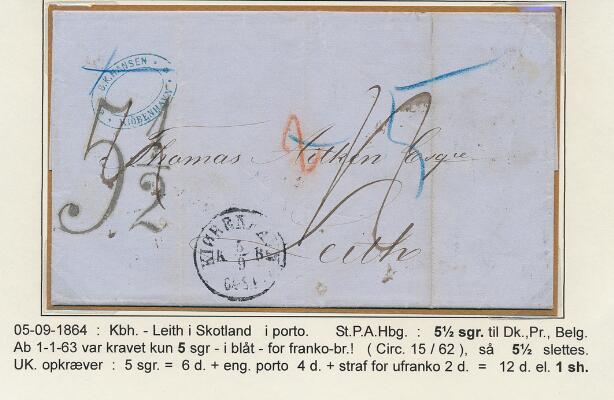 C.K. HANSEN
KJÖBENHAVN
5½
2
5
Thomas Aitken Esqre
Leith
KIØBENHAVN
5
9
64
05-09-1864 : Kbh. - Leith i Skotland i porto. St.P.A.Hbg. : 5½ sgr. til Dk.,Pr., Belg.
Ab 1-1-63 var kravet kun 5 sgr - i blåt - for franko-br.! ( Circ. 15 / 62 ), så 5½ slettes.
UK. opkræver : 5 sgr. = 6 d. + eng. porto 4 d. + straf for ufranko 2 d. = 12 d. el. 1 sh.